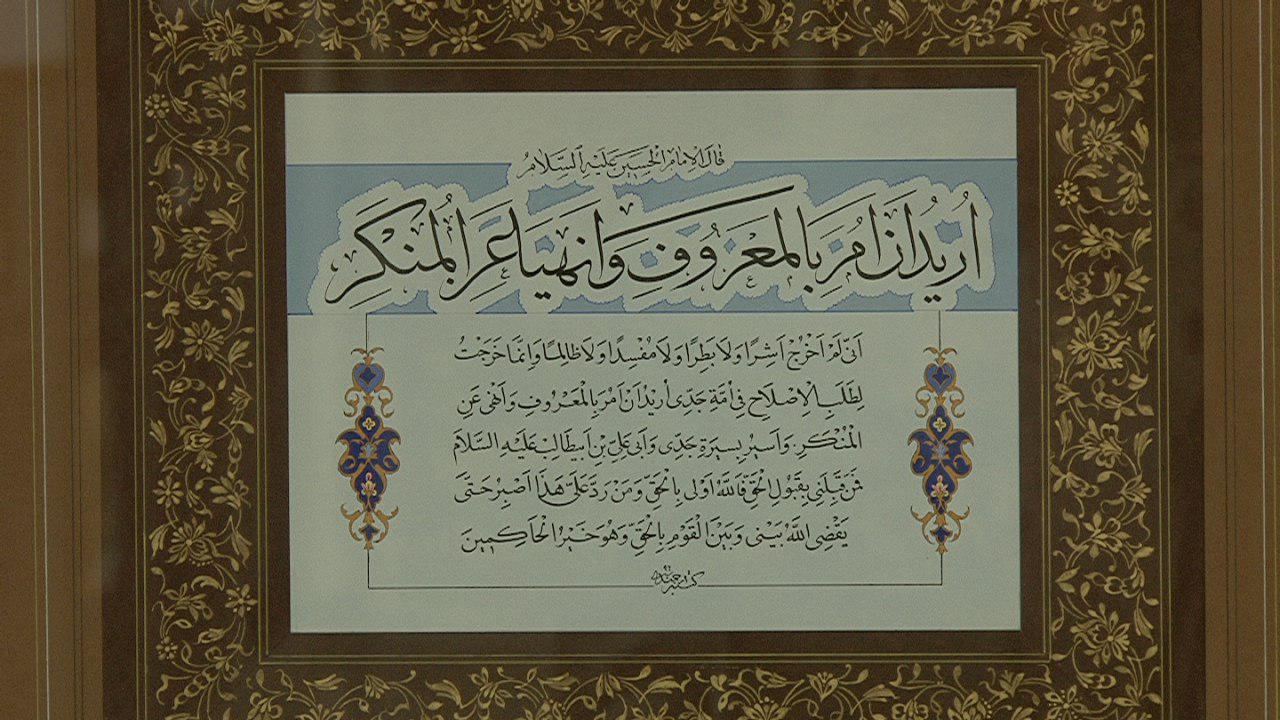 قال الإمام الحسین علیه السلام
اُریدُ اَن امُرَ بِالمَعرُوفِ وَ اَنهیٰ عَنِ المُنکَرِ
اَنّی لَم اَخرُج اَشِرًا وَ لا بَطِرًا وَ لا مُفسِدًا وَ لا ظالِمًا وَ اِنَّما خَرَجتُ
لِطَلَبِ الاِصلاحِ فی اُمَّةِ جَدّی اُریدُ اَن امُرَ بِالمَعرُوفِ وَ اَنهی عَنِ
المُنکَرِ وَ اَسیرُ بِسیرَةِ جَدّی وَ اَبی عَلِیِّ بنِ اَبیطالِبٍ عَلَیهِ السَّلامَ
فَمَن قَبِلَنی بِقَبُولِ الحَقِّ فَاللهُ اَولی بِالحَقِّ وَ مَن رَدَّ عَلَیَّ هَذا اَصبِرُ حَتّی
یَقضِیَ اللهُ بَینی وَ بَینَ القَومِ بِالحَقِّ وَ هُوَ خَیرُ الحاکِمینَ